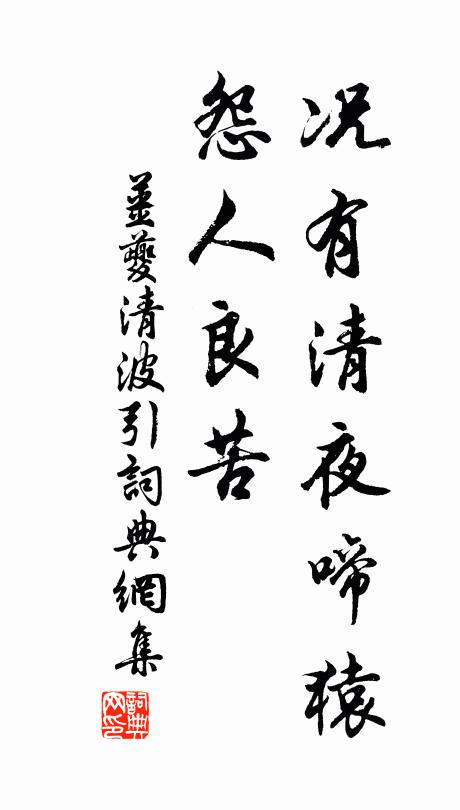 况有清夜啼猿
怨人良苦
姜夔清波引詞典網集
詞典
网印